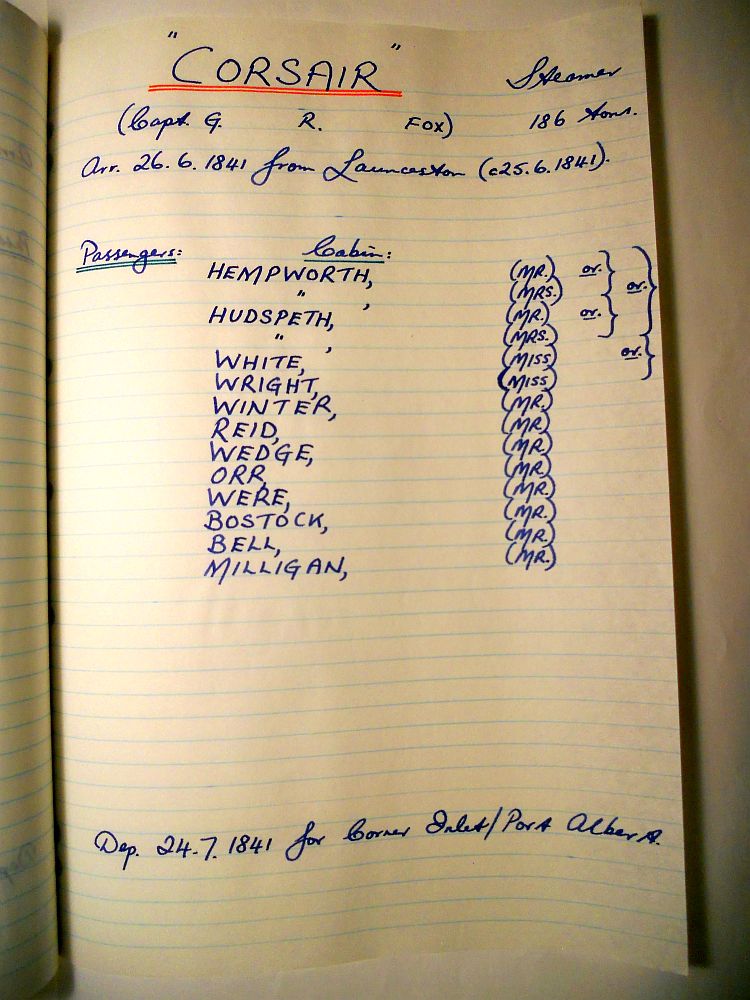 "CORSAIR" Steamer
(Capt. G. R. FOX) 186 tons.
Arr. 26.6.1841 from Launceston (c25.6.1841).
Passengers: Cabin:
HEMPWORTH, (MR.) or.
" , (MRS.) or.
HUDSPETH, (MR.) or.
" , (MRS.)
WHITE, (MISS) or.
WRIGHT, (MISS)
WINTER, (MR.)
REID, (MR.)
WEDGE, (MR.)
ORR, (MR.)
WERE, (MR.)
BOSTOCK, (MR.)
BELL, (MR.)
MILLIGAN, (MR.)
Dep. 24.7.1841 for Corner Inlet/Port Albert.